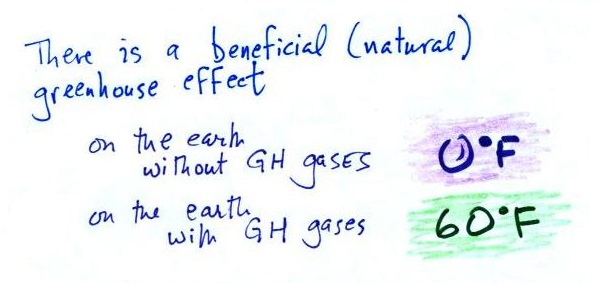 There is a beneficial (natural)
greenhouse effect
on the earth
without GH gases
0°F
on the earth
with GH gases
60°F